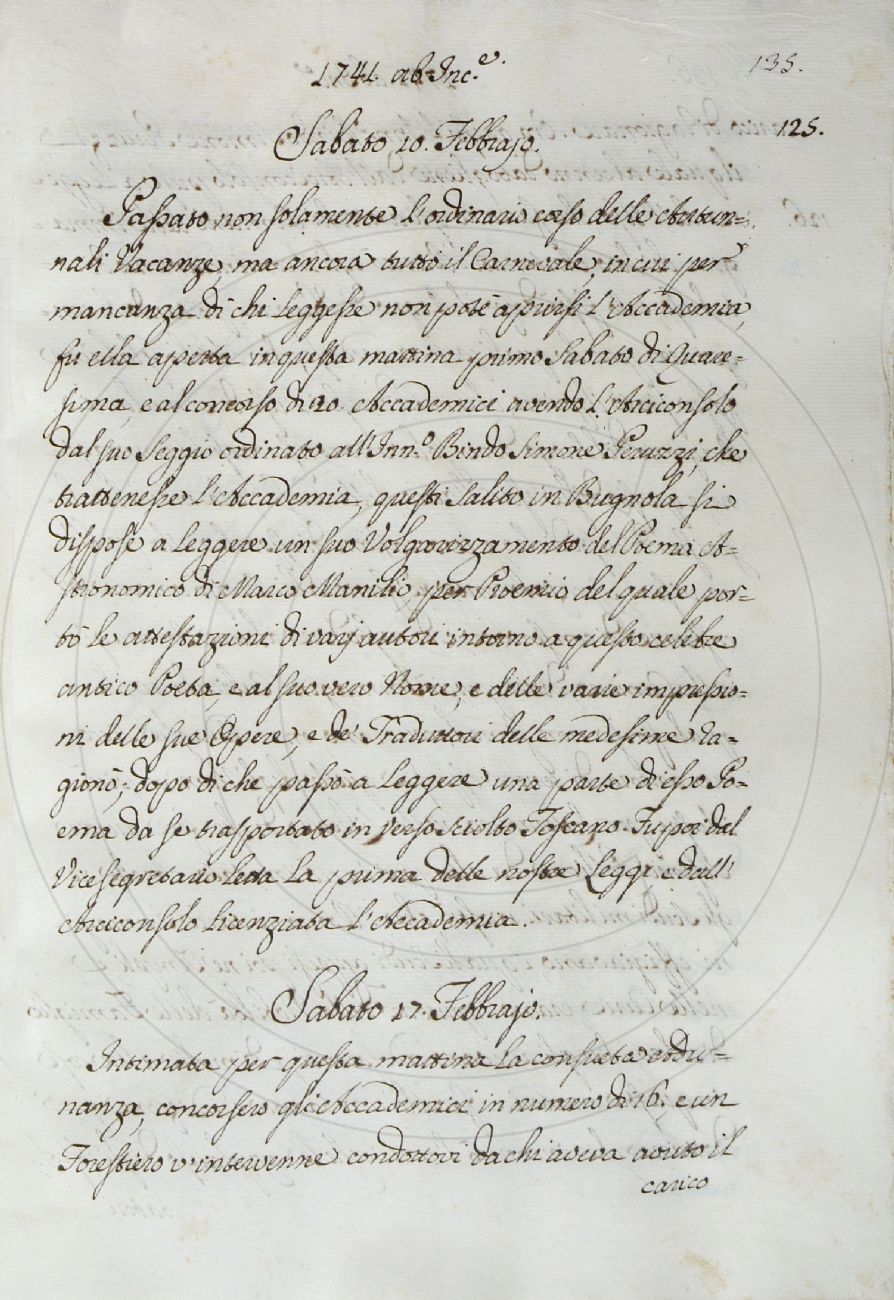 1741. ab Inc.e
135.
125.
Sabato 10. Febbrajo.
Passato non solamente l'ordinario corso delle Autun=
nali Vacanze, ma ancora tutto il Carnevale, in cui per
mancanza di chi leggesse non potè aprirsi l'Accademia,
fu ella aperta in questa mattina primo Sabato di Quare=
sima, e al concorso di 20. Accademici avendo l'Arciconsolo
dal suo Seggio ordinato all'Inn.o Bindo Simone Peruzzi, che
trattenesse l'Accademia, questi salito in Bugnola si
dispose a leggere un suo Volgarizzamento del Poema A=
stronomico di Marco Manilio, per Proemio del quale por=
tò le attestazioni di varj autori intorno a questo celebre
antico Poeta, e al suo vero Nome, e delle varie impressio=
ni delle sue Opere, e de' Traduttori delle medesime ra=
gionò; dopo di che passò a leggere una parte di esso Po=
ema da se trasportato in verso sciolto Toscano. Fu poi dal
Vicesegretario letta la prima delle nostre Leggi e dall'
Arciconsolo licenziata l'Accademia.
Sabato 17. Febbrajo.
Intimata per questa mattina la consueta adu=
nanza, concorsero gli Accademici in numero di 16. e un
Forestiero v'intervenne condottovi da chi aveva avuto il
carico